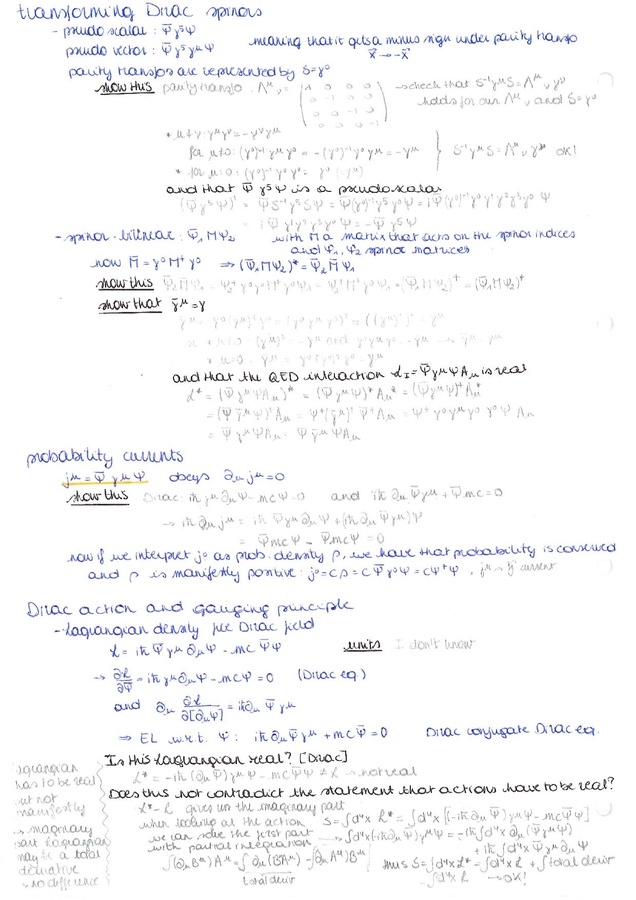 transforming Dirac spinors
- pseudo scalar: Ψ̄γ⁵Ψ
pseudo vector: Ψ̄γ⁵γμΨ
meaning that it gets a minus sign under parity transfo
x⃗ → -x⃗
parity transfos are represented by S=γ⁰
show this parity transfo. Λμν = (1 0 0 0
0 -1 0 0
0 0 -1 0
0 0 0 -1)
→ check that S⁻¹γμS = Λμν γν
holds for our Λμν and S=γ⁰
* μ≠ν: γμγν = -γνγμ
for μ≠0: (γ⁰)⁻¹γμγ⁰ = -(γ⁰)⁻¹γ⁰γμ = -γμ
* for μ=0: (γ⁰)⁻¹γ⁰γ⁰ = γ⁰
S⁻¹γμS = Λμν γν OK!
and that Ψ̄γ⁵Ψ is a pseudoscalar
(Ψ̄γ⁵Ψ)' = Ψ̄S⁻¹γ⁵SΨ = Ψ̄(γ⁰)⁻¹γ⁵γ⁰Ψ = iΨ̄(γ⁰)⁻¹γ⁰γ¹γ²γ³γ⁰Ψ
= -Ψ̄γ⁵Ψ
- spinor-bilinear: Ψ̄₁MΨ₂ with M a matrix that acts on the spinor indices
and Ψ₁, Ψ₂ spinor matrices
now M̄ = γ⁰M†γ⁰ ⇒ (Ψ̄₁MΨ₂)* = Ψ̄₂M̄Ψ₁
show this Ψ̄₂M̄Ψ₁ = Ψ₂†γ⁰γ⁰M†γ⁰Ψ₁ = Ψ₂†M†γ⁰Ψ₁ = (Ψ̄₁MΨ₂)† = (Ψ̄₁MΨ₂)*
show that γ̄μ = γμ
and that the QED interaction ℒI = Ψ̄γμΨAμ is real
ℒ* = (Ψ̄γμΨAμ)* = (Ψ̄γμΨ)*Aμ* = (Ψ̄γμΨ)†Aμ*
= Ψ̄γμΨAμ
probability currents
jμ = Ψ̄γμΨ obeys ∂μjμ=0
show this Dirac: iħγμ∂μΨ - mcΨ=0 and iħ∂μΨ̄γμ + Ψ̄mc=0
→ iħ∂μjμ = iħΨ̄γμ∂μΨ + (iħ∂μΨ̄γμ)Ψ
= Ψ̄mcΨ - Ψ̄mcΨ = 0
now if we interpret j⁰ as prob. density ρ, we have that probability is conserved
and ρ is manifestly positive: j⁰=cρ = cΨ̄γ⁰Ψ = cΨ†Ψ
Dirac action and gauging principle
- Lagrangian density for Dirac field
ℒ = iħΨ̄γμ∂μΨ - mcΨ̄Ψ
units I don't know
→ ∂ℒ/∂Ψ̄ = iħγμ∂μΨ - mcΨ = 0 (Dirac eq.)
and ∂μ ∂ℒ/∂[∂μΨ] = iħ∂μΨ̄γμ
⇒ EL w.r.t. Ψ: iħ∂μΨ̄γμ + mcΨ̄ = 0 Dirac conjugate Dirac eq.
Is this Lagrangian real? [Dirac]
ℒ* = -iħ(∂μΨ̄)γμΨ - mcΨ̄Ψ ≠ ℒ → not real
Does this not contradict the statement that actions have to be real?
ℒ*-ℒ gives us the imaginary part
when looking at the action S = ∫d⁴x ℒ* = ∫d⁴x [-iħ(∂μΨ̄)γμΨ - mcΨ̄Ψ]
we can solve the first part → ∫d⁴x(iħ∂μΨ̄)γμΨ = -iħ∫d⁴x ∂μ(Ψ̄γμΨ)
with partial integration + iħ∫d⁴x Ψ̄γμ∂μΨ
∫(∂μBμ)Aμ = ∫∂μ(BAμ) - ∫(∂μAμ)Bμ
total deriv
thus S=∫d⁴xℒ* = ∫d⁴xℒ + ∫total deriv
= ∫d⁴xℒ → OK!
Lagrangian
has to be real
but not
manifestly
→ imaginary
part Lagrangian
may be a total
derivative
→ no difference